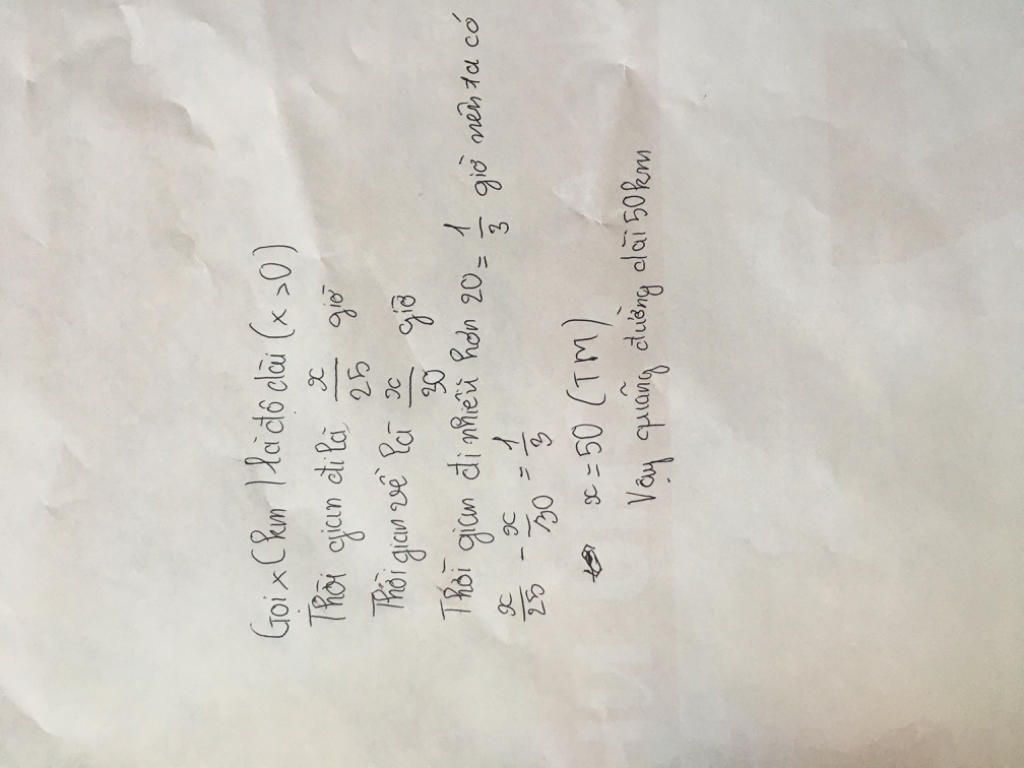 Gọi x (km) là độ dài (x > 0)
Thời gian đi là x/25 giờ
Thời gian về là x/30 giờ
Thời gian đi nhiều hơn 20 = 1/3 giờ nên ta có
x/25 - x/30 = 1/3
x = 50 (TM)
Vậy quãng đường dài 50km